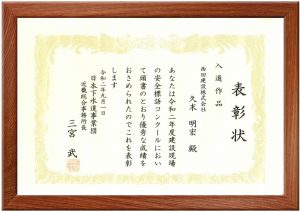 表彰状
入選作品
西田建設株式会社
久米 明宏 殿
あなたは令和二年度建設現場
の安全標語コンクールにおい
て頭書のとおり優秀な成績を
おさめられたのでこれを表彰
します
令和二年九月一日
日本下水道事業団
近畿総合事務所長
三宮 武